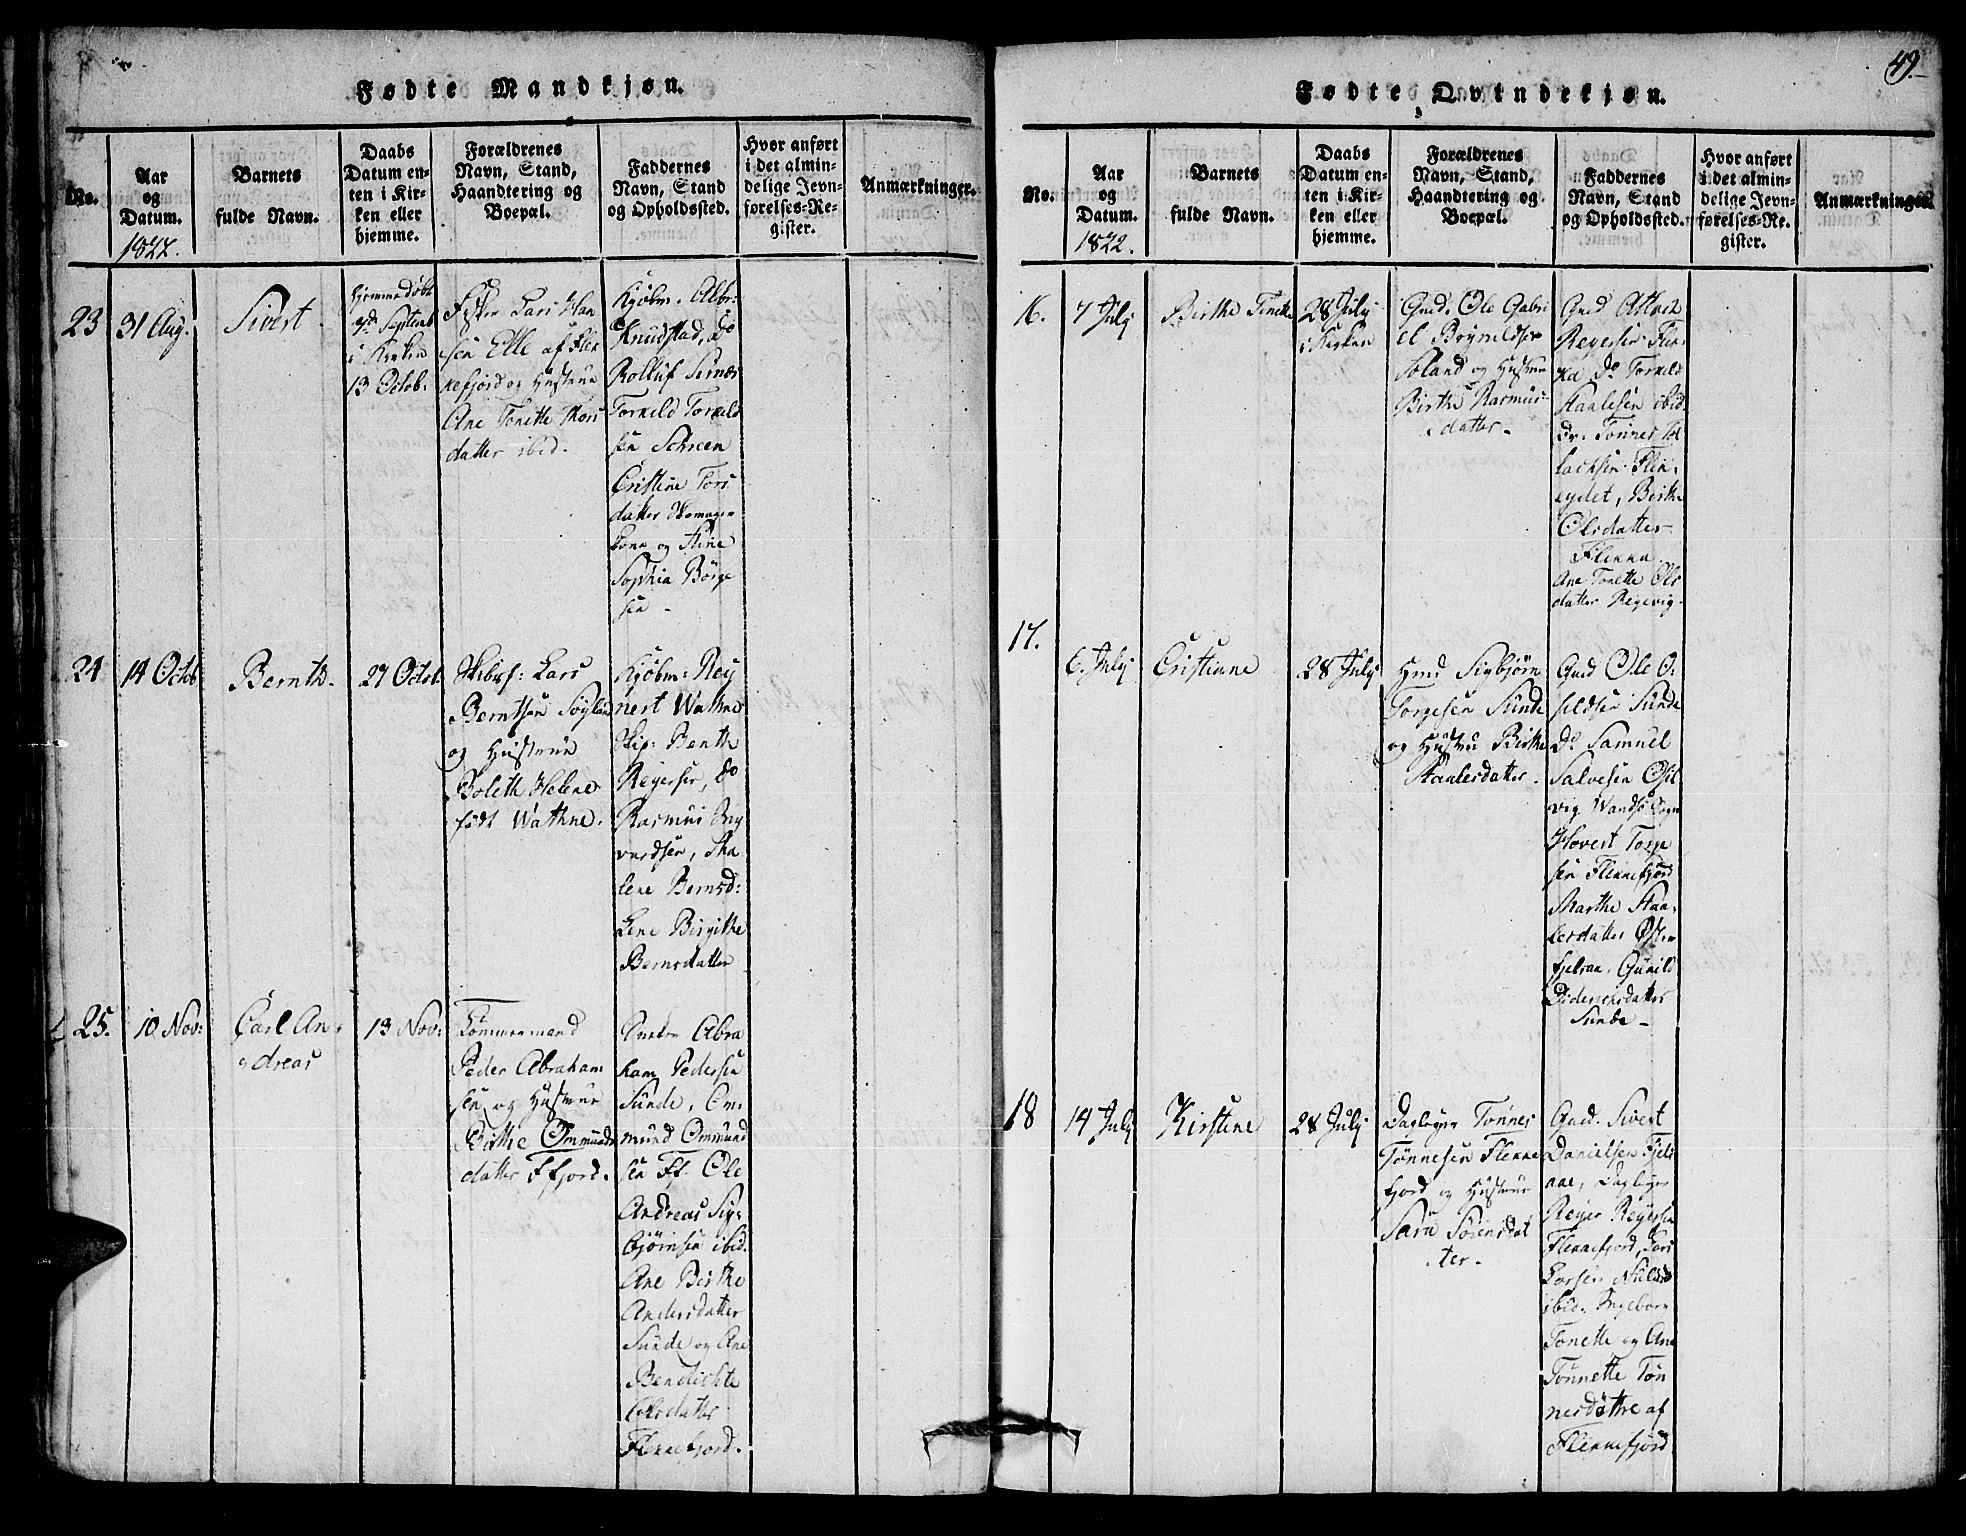 Fødte Mandkjøn.
No.
Aar
og
Datum.
1822.
Barnets
fulde Navn.
Daabs
Datum en-
ten i Kir-
ken eller
hjemme.
Forældrenes
Navn, Stand,
Haandtering og
Boepæl.
Faddernes
Navn, Stand
og Opholdssted.
Hvor anført
i det almin-
delige Jevn-
førelses-Re-
gister.
Anmærkninger.
23
31 Aug.
Sivert.
Hjemmedøbt
Septemb
i Kirken
13 Octob.
Lars Han
sen Elle af Flek
kefjord og Hustrue
Ane Tonette Thors
datter ibid.
Kjøbm. Albr.
Knudstad, do
Rolluf Sernes
Torkild Torkild
sen Schreen
Cristine Tors
datter Skomager
kone og Stine
Sophia Börge
sen
24
14 Octob
Bernth.
27 Octob.
Skibsf: Lars
Berntsen
og Hustrue
Boleth Helene
født Wathne.
Kjöbm: Rey
nert Wathne
Skip: Benth
Reyersen, do
Rasmus Ing
vardsen, Tha
lene Bernsd:
Lene Birgithe
Bernsdatter
25.
10 Nov:
Carl An
dreas
13 Nov:
Tømmermand
Peder Abraham
sen og Hustrue
Birthe Ommunds
datter Ffjord.
Abra
ham Pedersen
Sunde, Om
mund Ommund
sen Ff. Ole
Andreas Sig
bjørnsen ibid.
Ane Birthe
Andersdatter
Sunde og Ane
Bendichte
Olsdatter
Flekkefjord.
49.
Fødte Qvindekjøn.
No.
Aar
og
Datum.
1822.
Barnets
fulde Navn.
Daabs
Datum en-
ten i Kir-
ken eller
hjemme.
Forældrenes
Navn, Stand,
Haandtering og
Boepæl.
Faddernes
Navn, Stand
og Opholdssted.
Hvor anført
i det almin-
delige Jevn-
førelses-Re-
gister.
Anmærkninger.
16.
7 July
Birthe Tonette
28 July
i Kirken
Gmd. Ole Gabri
el Brynildsen
Soland og Hustrue
Birthe Rasmus
datter.
Gmd
Reyersen Flik
ka Do Torkild
Staalesen ibid.
Dr. Tønnes Tol
lachsen Flik
eydet, Birthe
Olsdatter
Flikka
Ane Tonette Ols
datter Regevig
17.
6. July
Cristiane
28 July
Hmd Sigbjørn
Torgesen Sunde
og Hustru Birthe
Staalesdatter.
Gmd Ole O.
sieldsen Sunde
Do Samuel
Salvesen Osel
vig Wandsö Sogn
Hovert Torge
sen Flekkefjord
Marthe Staa
lesdatter Østre
fjelsaa, Gunild
Dideriksdatter
Sunde
18
14 July
Kirstine
28 July
Dagleyer Tonnes
Tönnesen Flekke
fjord og Hustrue
Sara Soiensdat
ter.
Gmd. Sivert
Danielsen Fjels
aae, Dagleyer
Reyer Reyersen
Flekkefjord, Lars
Larsen
ibid. Ingeborg
Tonette og Ane
Tonnette Tön
nesdøttre af
Flekkefjord